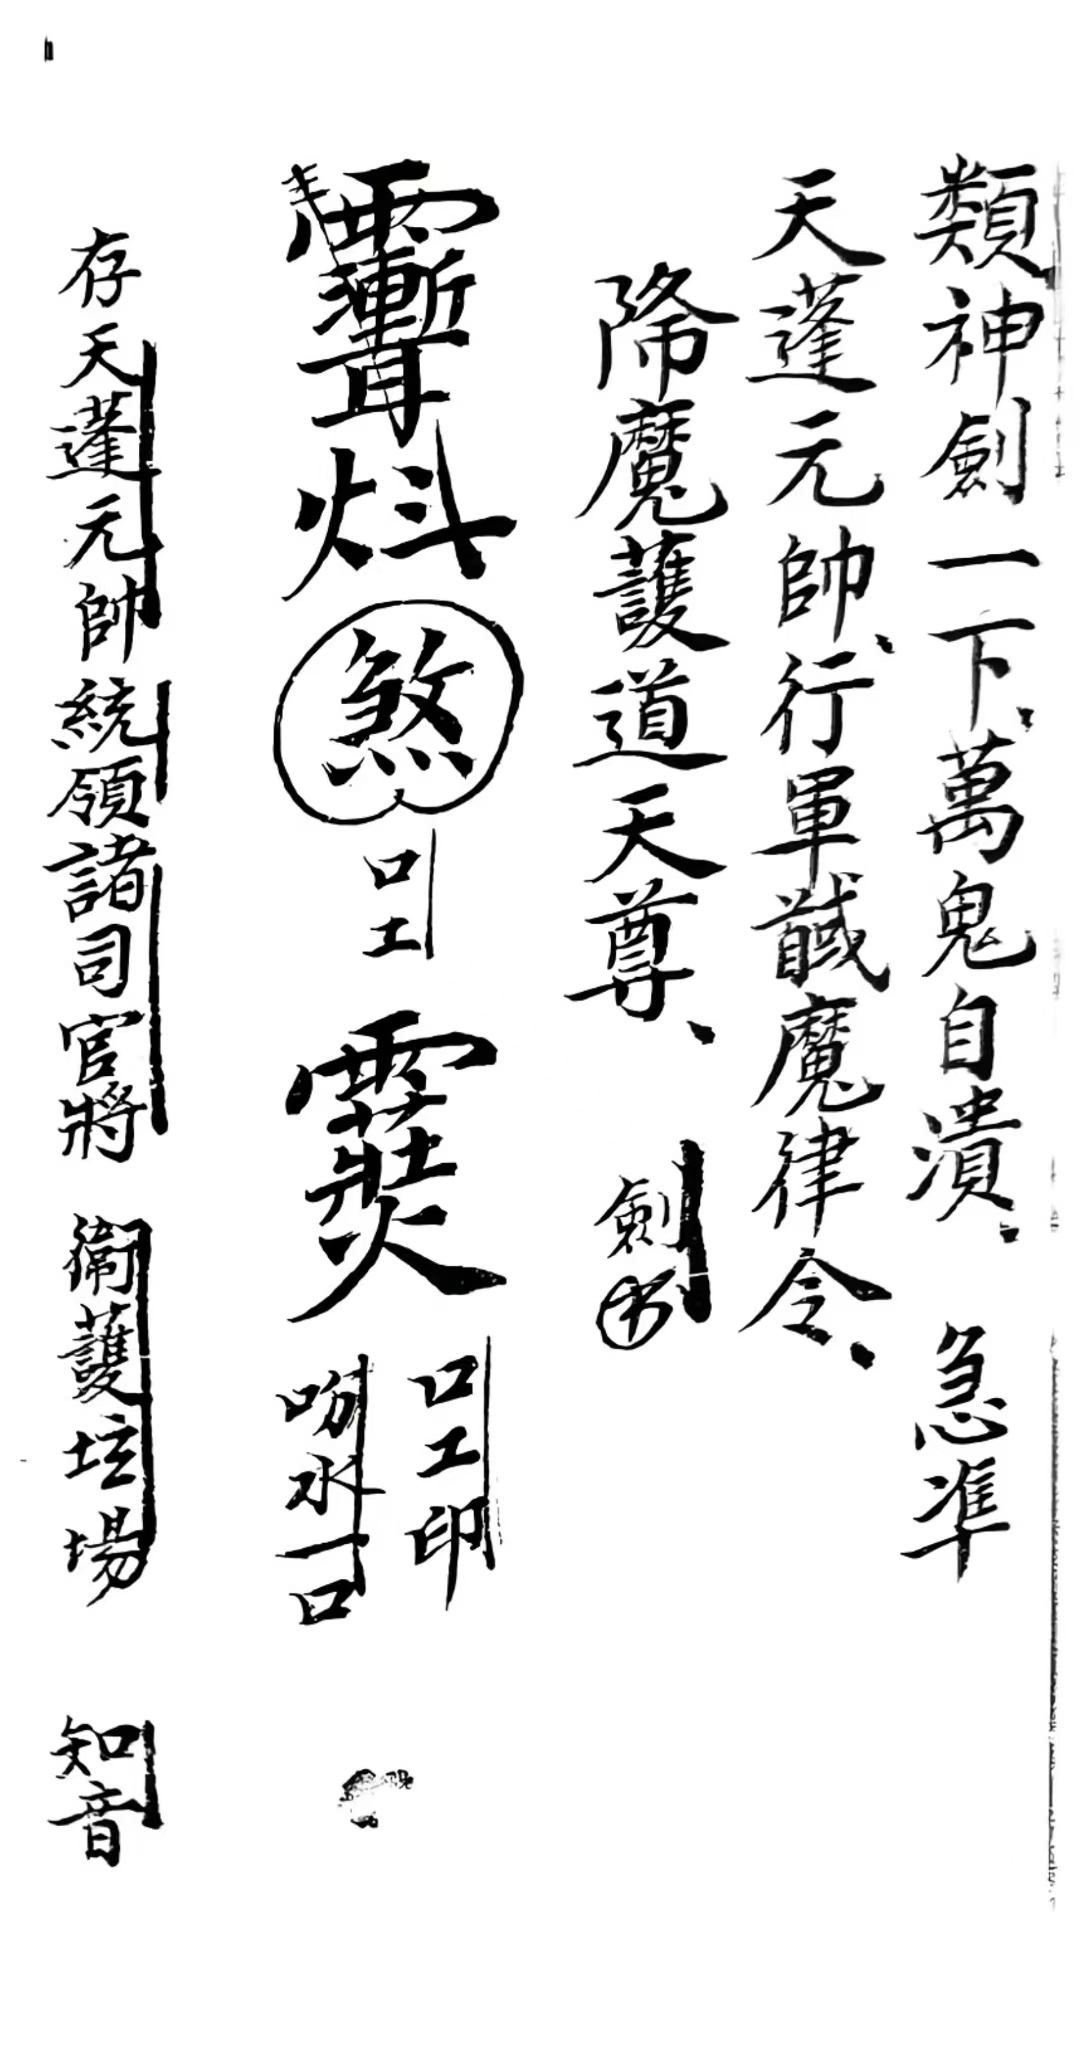 類神劍一下、萬鬼自潰、急準
天蓬元帥、行軍馘魔律令、
降魔護道天尊、劍
煞
口工
口工印
噀水一口
存天蓬元帥統領諸司官將衛護坛場知音